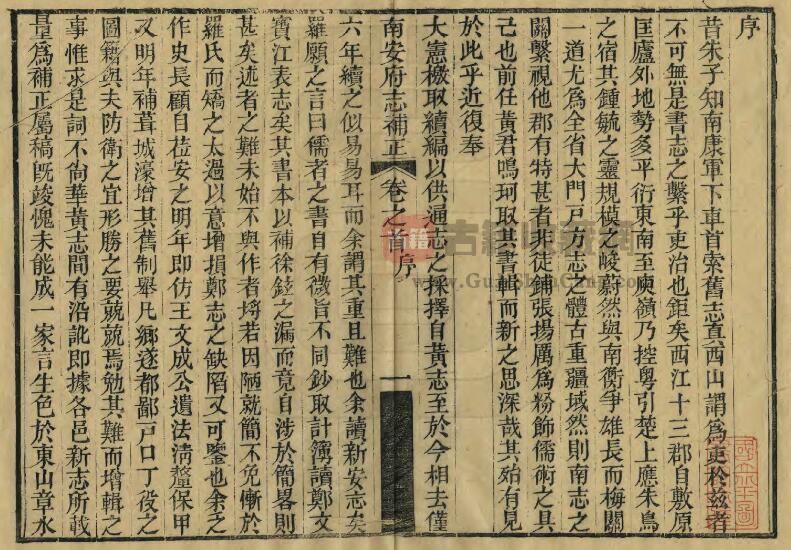 序
昔朱子知南康軍下車首索舊志真西山謂爲吏於兹者
不可無是書志之繫乎吏治也鉅矣西江十三郡自敷原
匡廬外地勢多平衍東南至庾嶺乃控粵引楚上應朱鳥
之宿其鍾毓之靈規模之峻蔚然與南衡爭雄長而梅關
一道尤爲全省大門戸方志之體古重疆域然則南志之
關繫視他郡有特甚者非徒鋪張揚厲爲粉飾儒術之具
己也前任黃君鳴珂取其書輯而新之思深哉其殆有見
於此乎近復奉
大憲檄取續編以供通志之採擇自黃志至於今相去僅
南安府志補正 卷之首 序 一
六年續之似易易耳而余謂其重且難也余讀新安志矣
羅願之言曰儒者之書自有微旨不同鈔取計簿讀鄭文
寶江表志矣其書本以補徐鉉之漏而竟自涉於簡畧則
甚矣述者之難未始不與作者埓若因陋就簡不免慚於
羅氏而矯之太過以意增損鄭志之缺陷又可鑒也余之
作史長顧自莅安之明年即仿王文成公遺法清釐保甲
又明年補葺城濠增其舊制舉凡鄉遂都鄙戸口丁役之
圖籍與夫防衛之宜形勝之要兢兢焉勉其難而增輯之
事惟求是詞不尙華黃志間有沿訛即據各邑新志所載
量爲補正屬稿旣竣愧未能成一家言生色於東山章水
古籍